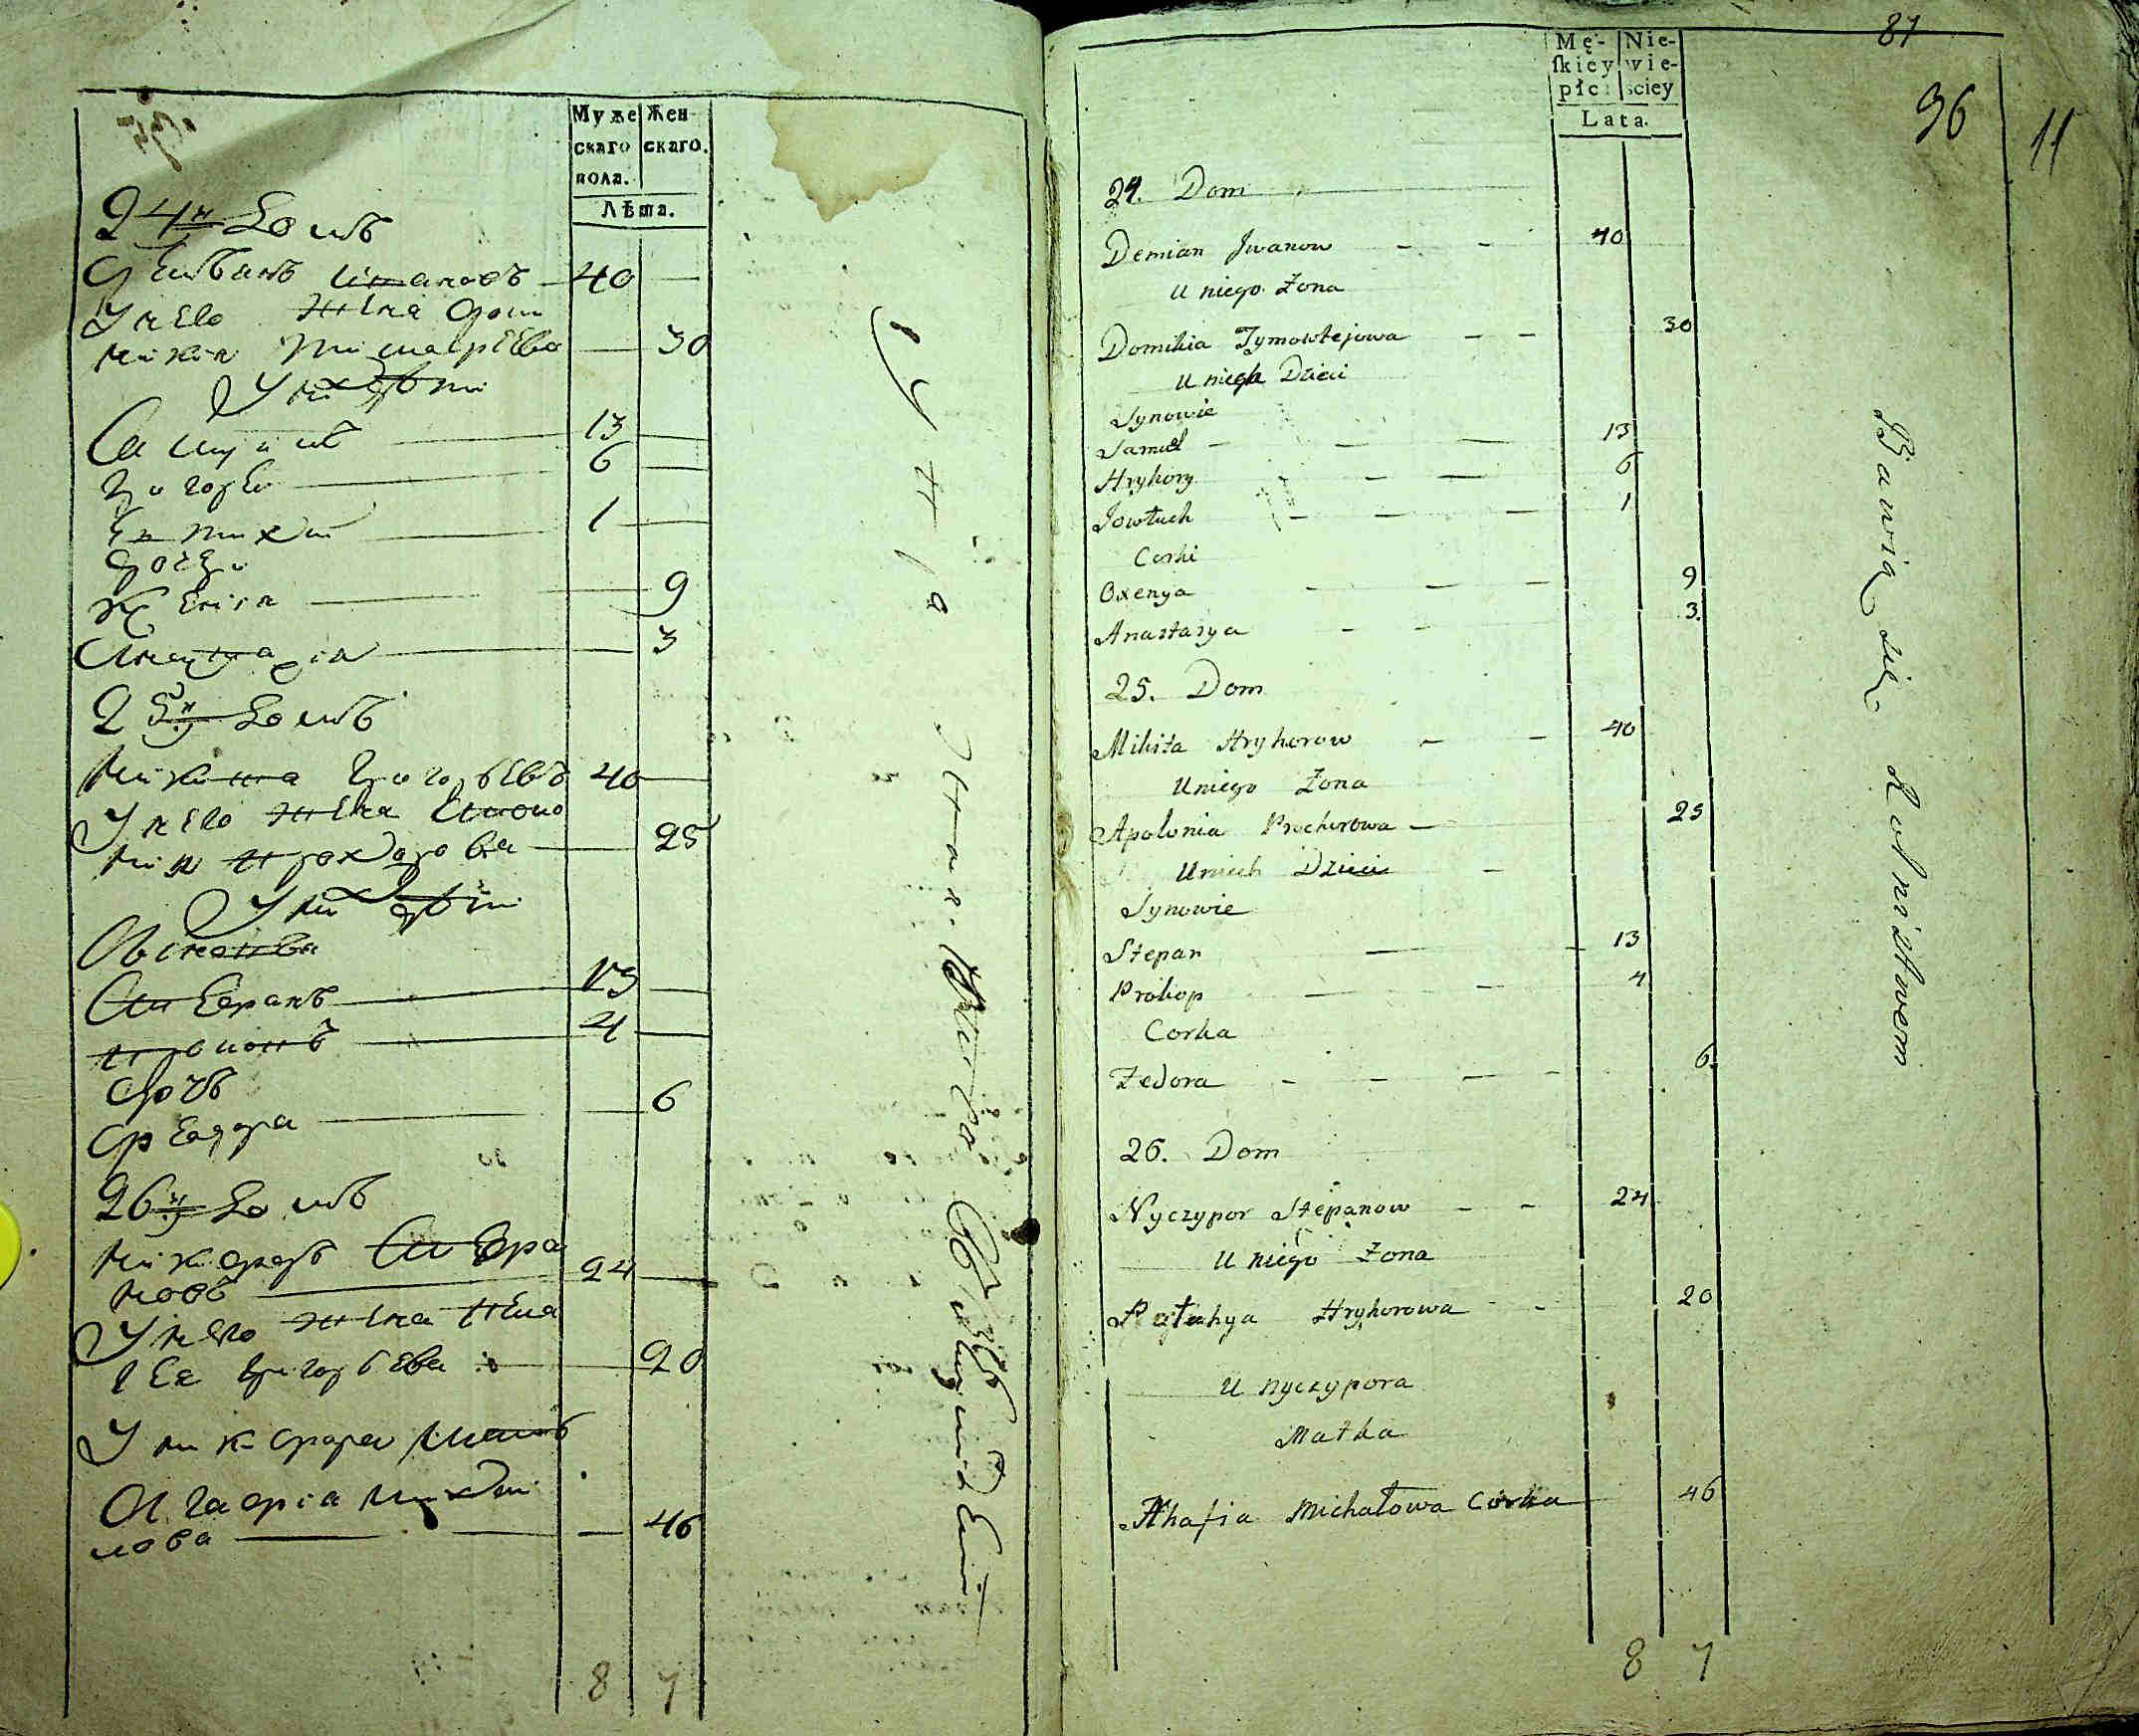 Муже
скаго
пола.
Жен
скаго.
Лѣта.
24й Домъ
Демьянъ Ивановъ 40
У него жена Доми
никія Тимофеева 30
У них дѣти
Самуилъ 13
Григорей 6
Евтихей 1
Дочери
Ксенія 9
Анастасія 3
25й Домъ
Никита Григорьевъ 40
У него жена Аполо
нія Прохорова 25
У них дѣти
Сыновья
Стефанъ 13
Прокопъ 4
Дочь
Федора 6
26й Домъ
Никифоръ Стефа
новъ 24
У него жена Пела
гея Григорьева 20
У Никифора мать
Агафія Михай
лова 46
8 7
81
96
11
Mę-
skiey
płci
Nie-
wie-
sciey
Lata.
24. Dom
Demian Jwanow 40
u niego Zona
Domikia Tymowtejowa 30
u nich Dzieci
Synowie
Samuel 13
Hryhory 6
Jowtuch 1
Corki
Oxenya 9
Anastasya 3.
25. Dom
Mikita Hryhorow 40
U niego Zona
Apolonia Prochorowa 25
U nich Dzieci
Synowie
Stepan 13
Prokop 4
Corka
Fedora 6.
26. Dom
Nyczypor Stepanow 24
u niego Zona
Patahya Hryhorowa 20
u nyczypora
Matka
Ahafia Michałowa Corka 46
Bawią się Rolnictwem
8 7